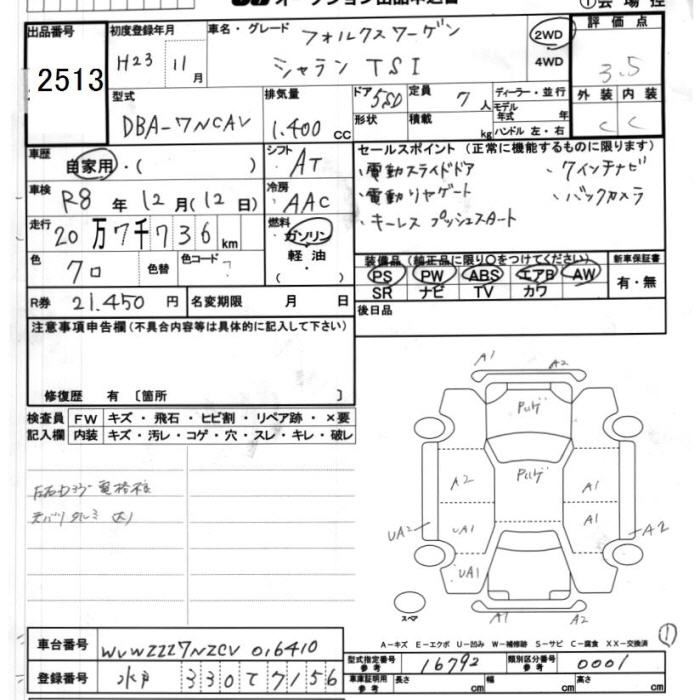 出品番号
2513
初度登録年月
H23年 11月
車名・グレード
フォルクスワーゲン
シャラン TSI
2WD
4WD
評価点
3.5
外装 内装
C C
型式
DBA-7NCAV
排気量
1.400 cc
ドア
5SD
形状
定員
7人
積載
kg
ディーラー・並行
モデル年式 年
ハンドル 左・右
車歴
自家用・( )
シフト
AT
車検
R8年12月(12日)
冷房
AAC
走行
20万7千736km
燃料
ガソリン
軽油
( )
色
クロ
色替
色コード
?
R券 21.450円
名変期限 月 日
セールスポイント(正常に機能するものに限ります)
・電動スライドドア ・7インチナビ
・電動リヤゲート ・バックカメラ
・キーレス プッシュスタート
装備品(純正品に限り○をつけてください)
PS PW ABS エアB AW
SR ナビ TV カワ
新車保証書
有・無
後日品
注意事項申告欄(不具合内容等は具体的に記入して下さい)
修復歴 有 〔箇所 〕
検査員記入欄
FW キズ・飛石・ヒビ割・リペア跡・×要
内装 キズ・汚レ・コゲ・穴・スレ・キレ・破レ
A1 A2
A2 A1
UA1 A1
UA2 A2
UA1
A1 A2
スペア
A-キズ E-エクボ U-凹み W-補修跡 S-サビ C-腐食 XX-交換済
①
車台番号
WVWZZZ7NZCV016410
登録番号
水戸 330 て 7156
型式指定番号
参考
16792
類別区分番号
参考
0001
車庫証明用
参考
長さ cm
幅 cm
高さ cm